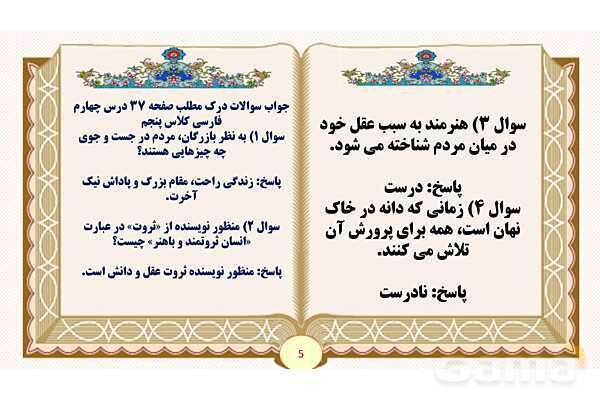 سوال ۳) هنرمند به سبب عقل خود
در میان مردم شناخته می شود.
پاسخ: درست
سوال ۴) زمانی که دانه در خاک
نهان است، همه برای پرورش آن
تلاش می کنند.
پاسخ: نادرست
جواب سوالات درک مطلب صفحه ۳۷ درس چهارم
فارسی کلاس پنجم
سوال ۱) به نظر بازرگان، مردم در جست و جوی
چه چیزهایی هستند؟
پاسخ: زندگی راحت، مقام بزرگ و پاداش نیک
آخرت.
سوال ۲) منظور نویسنده از «ثروت» در عبارت
«انسان ثروتمند و باهنر» چیست؟
پاسخ: منظور نویسنده ثروت عقل و دانش است.
5
Gama